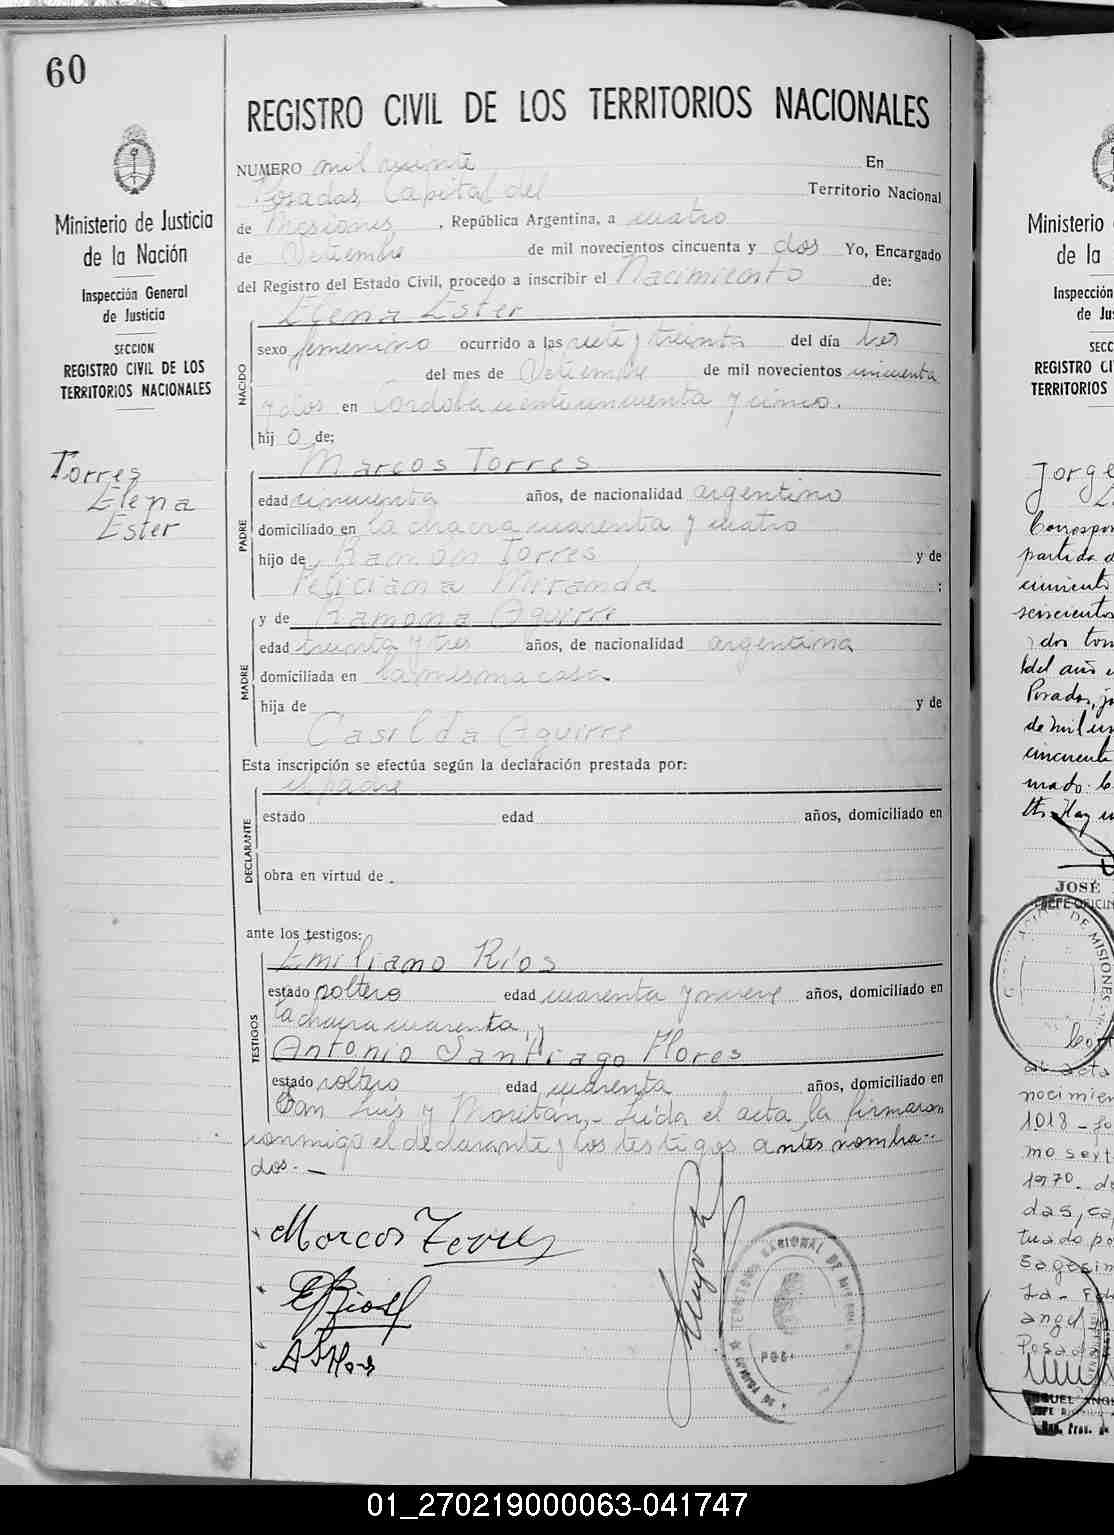 60
REGISTRO CIVIL DE LOS TERRITORIOS NACIONALES
Ministerio de Justicia
de la Nación
Inspección General
de Justicia
SECCION
REGISTRO CIVIL DE LOS
TERRITORIOS NACIONALES
Torres
Elena
Ester
NUMERO mil veinte En
Posadas, Capital del Territorio Nacional
de Misiones, República Argentina, a cuatro
de Setiembre de mil novecientos cincuenta y dos Yo, Encargado
del Registro del Estado Civil, procedo a inscribir el Nacimiento de:
Elena Ester
NACIDO
sexo femenino ocurrido a las siete y treinta del día tres
del mes de Setiembre de mil novecientos cincuenta
y dos en Córdoba veinticincuenta y cinco.
hij a de:
Marcos Torres
PADRE
edad cincuenta años, de nacionalidad argentino
domiciliado en la chacra cuarenta y cuatro
hijo de Ramón Torres y de
Feliciana Miranda ;
y de Ramona Aguirre
MADRE
edad treinta y tres años, de nacionalidad argentina
domiciliada en la misma casa
hija de y de
Casilda Aguirre
Esta inscripción se efectúa según la declaración prestada por:
el padre
DECLARANTE
estado edad años, domiciliado en
obra en virtud de .
ante los testigos:
Emiliano Ríos
TESTIGOS
estado soltero edad cuarenta y nueve años, domiciliado en
la chacra cuarenta, y
Antonio Santiago Flores
estado soltero edad cuarenta años, domiciliado en
San Luis y Moritán.- Leída el acta, la firmaron
conmigo el declarante y los testigos antes nombra-
dos.-
Marcos Torres
E Rios
A S Flores
TERRITORIO NACIONAL DE MISIONES
Ministerio
de la
Inspección
de Jus
SECC
REGISTRO CI
TERRITORIOS
Jorge
Correspon
partida d
cimiento
seiscientos
dos tom
del año
Posadas, ju
de mil
cincuenta
mado:
Hay
JOSÉ
JEFE OFICIN
DE MISIONES
al acta
nocimien
1018 - fo
mo sext
1970. de
das, ca
tuado po
Sagesim
ta - Fe
angel
Posad
GUEL ANG
JEFE